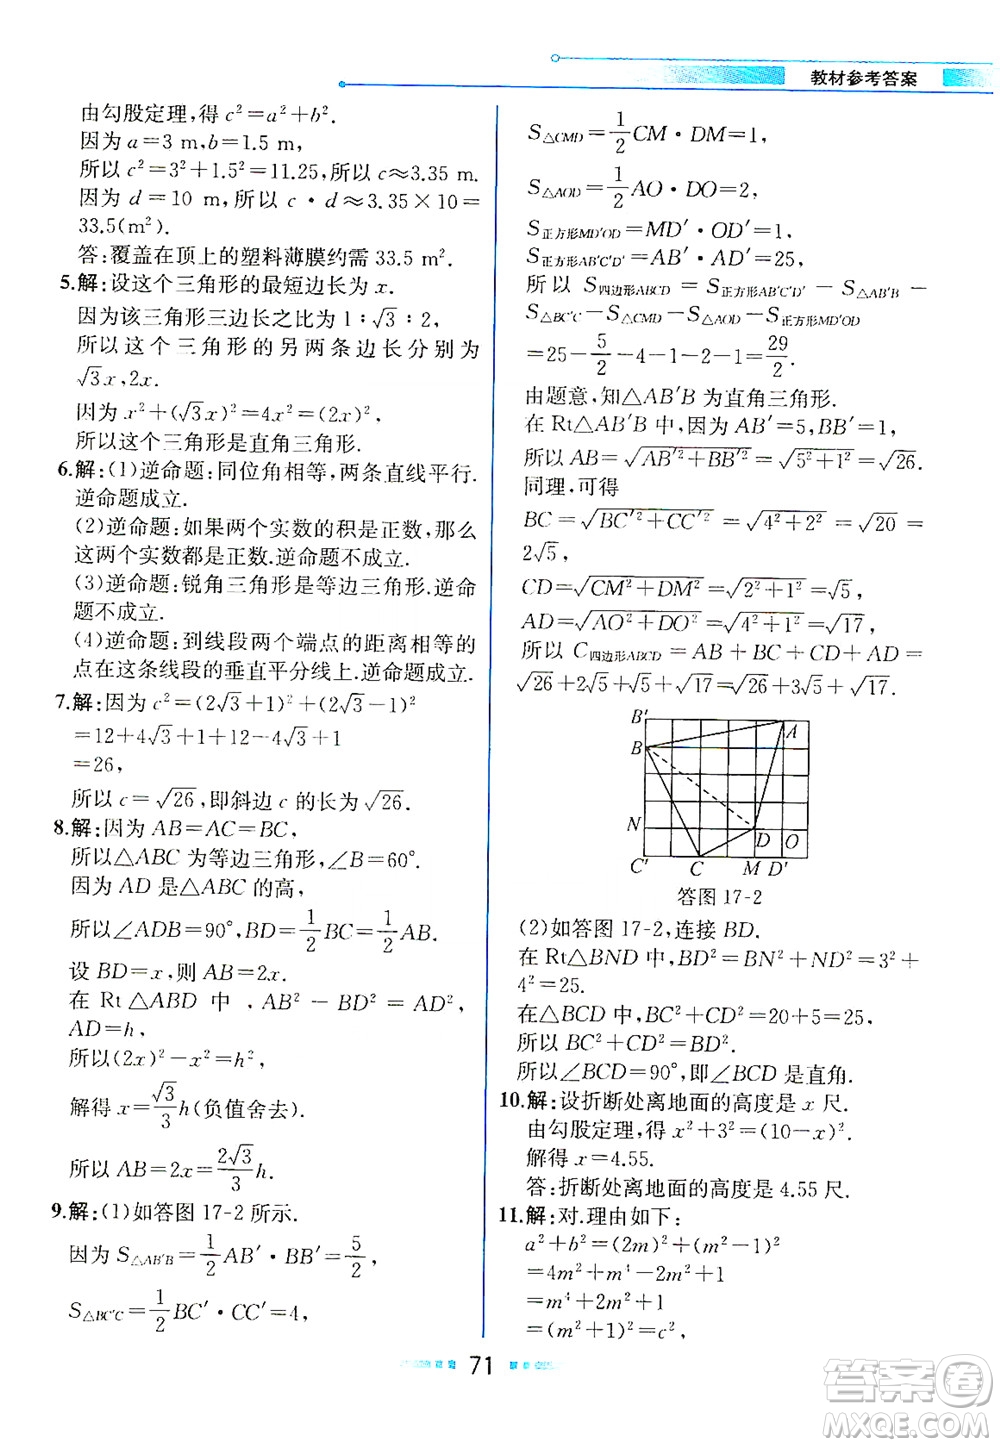 教材参考答案
由勾股定理,得 c²=a²+b².
因为 a=3 m,b=1.5 m,
所以 c²=3²+1.5²=11.25,所以 c≈3.35 m.
因为 d=10 m,所以 c·d≈3.35×10=
33.5(m²).
答:覆盖在顶上的塑料薄膜约需 33.5 m².
5.解:设这个三角形的最短边长为 x.
因为该三角形三边长之比为 1∶√3∶2,
所以这个三角形的另两条边长分别为
√3x,2x.
因为 x²+(√3x)²=4x²=(2x)²,
所以这个三角形是直角三角形.
6.解:(1)逆命题:同位角相等,两条直线平行.
逆命题成立.
(2)逆命题:如果两个实数的积是正数,那么
这两个实数都是正数.逆命题不成立.
(3)逆命题:锐角三角形是等边三角形.逆命
题不成立.
(4)逆命题:到线段两个端点的距离相等的
点在这条线段的垂直平分线上.逆命题成立.
7.解:因为 c²=(2√3+1)²+(2√3-1)²
=12+4√3+1+12-4√3+1
=26,
所以 c=√26,即斜边 c 的长为√26.
8.解:因为 AB=AC=BC,
所以△ABC 为等边三角形,∠B=60°.
因为 AD 是△ABC 的高,
所以∠ADB=90°,BD=1/2BC=1/2AB.
设 BD=x,则 AB=2x.
在 Rt△ABD 中,AB²-BD²=AD²,
AD=h,
所以(2x)²-x²=h²,
解得 x=√3/3h(负值舍去).
所以 AB=2x=2√3/3h.
9.解:(1)如答图 17-2 所示.
因为 S△AB'B=1/2AB'·BB'=5/2,
S△BC'C=1/2BC'·CC'=4,
S△CMD=1/2CM·DM=1,
S△AOD=1/2AO·DO=2,
S正方形MD'OD=MD'·OD'=1,
S正方形AB'C'D'=AB'·AD'=25,
所以 S四边形ABCD=S正方形AB'C'D'-S△AB'B-
S△BC'C-S△CMD-S△AOD-S正方形MD'OD
=25-5/2-4-1-2-1=29/2.
由题意,知△AB'B 为直角三角形.
在 Rt△AB'B 中,因为 AB'=5,BB'=1,
所以 AB=√AB'²+BB'²=√5²+1²=√26.
同理,可得
BC=√BC'²+CC'²=√4²+2²=√20=
2√5,
CD=√CM²+DM²=√2²+1²=√5,
AD=√AO²+DO²=√4²+1²=√17,
所以 C四边形ABCD=AB+BC+CD+AD=
√26+2√5+√5+√17=√26+3√5+√17.
B'
A
B
N
D
O
C'
C
M
D'
答图 17-2
(2)如答图 17-2,连接 BD.
在 Rt△BND 中,BD²=BN²+ND²=3²+
4²=25.
在△BCD 中,BC²+CD²=20+5=25,
所以 BC²+CD²=BD².
所以∠BCD=90°,即∠BCD 是直角.
10.解:设折断处离地面的高度是 x 尺.
由勾股定理,得 x²+3²=(10-x)².
解得 x=4.55.
答:折断处离地面的高度是 4.55 尺.
11.解:对.理由如下:
a²+b²=(2m)²+(m²-1)²
=4m²+m⁴-2m²+1
=m⁴+2m²+1
=(m²+1)²=c²,
71
答案圈
MXQE.COM